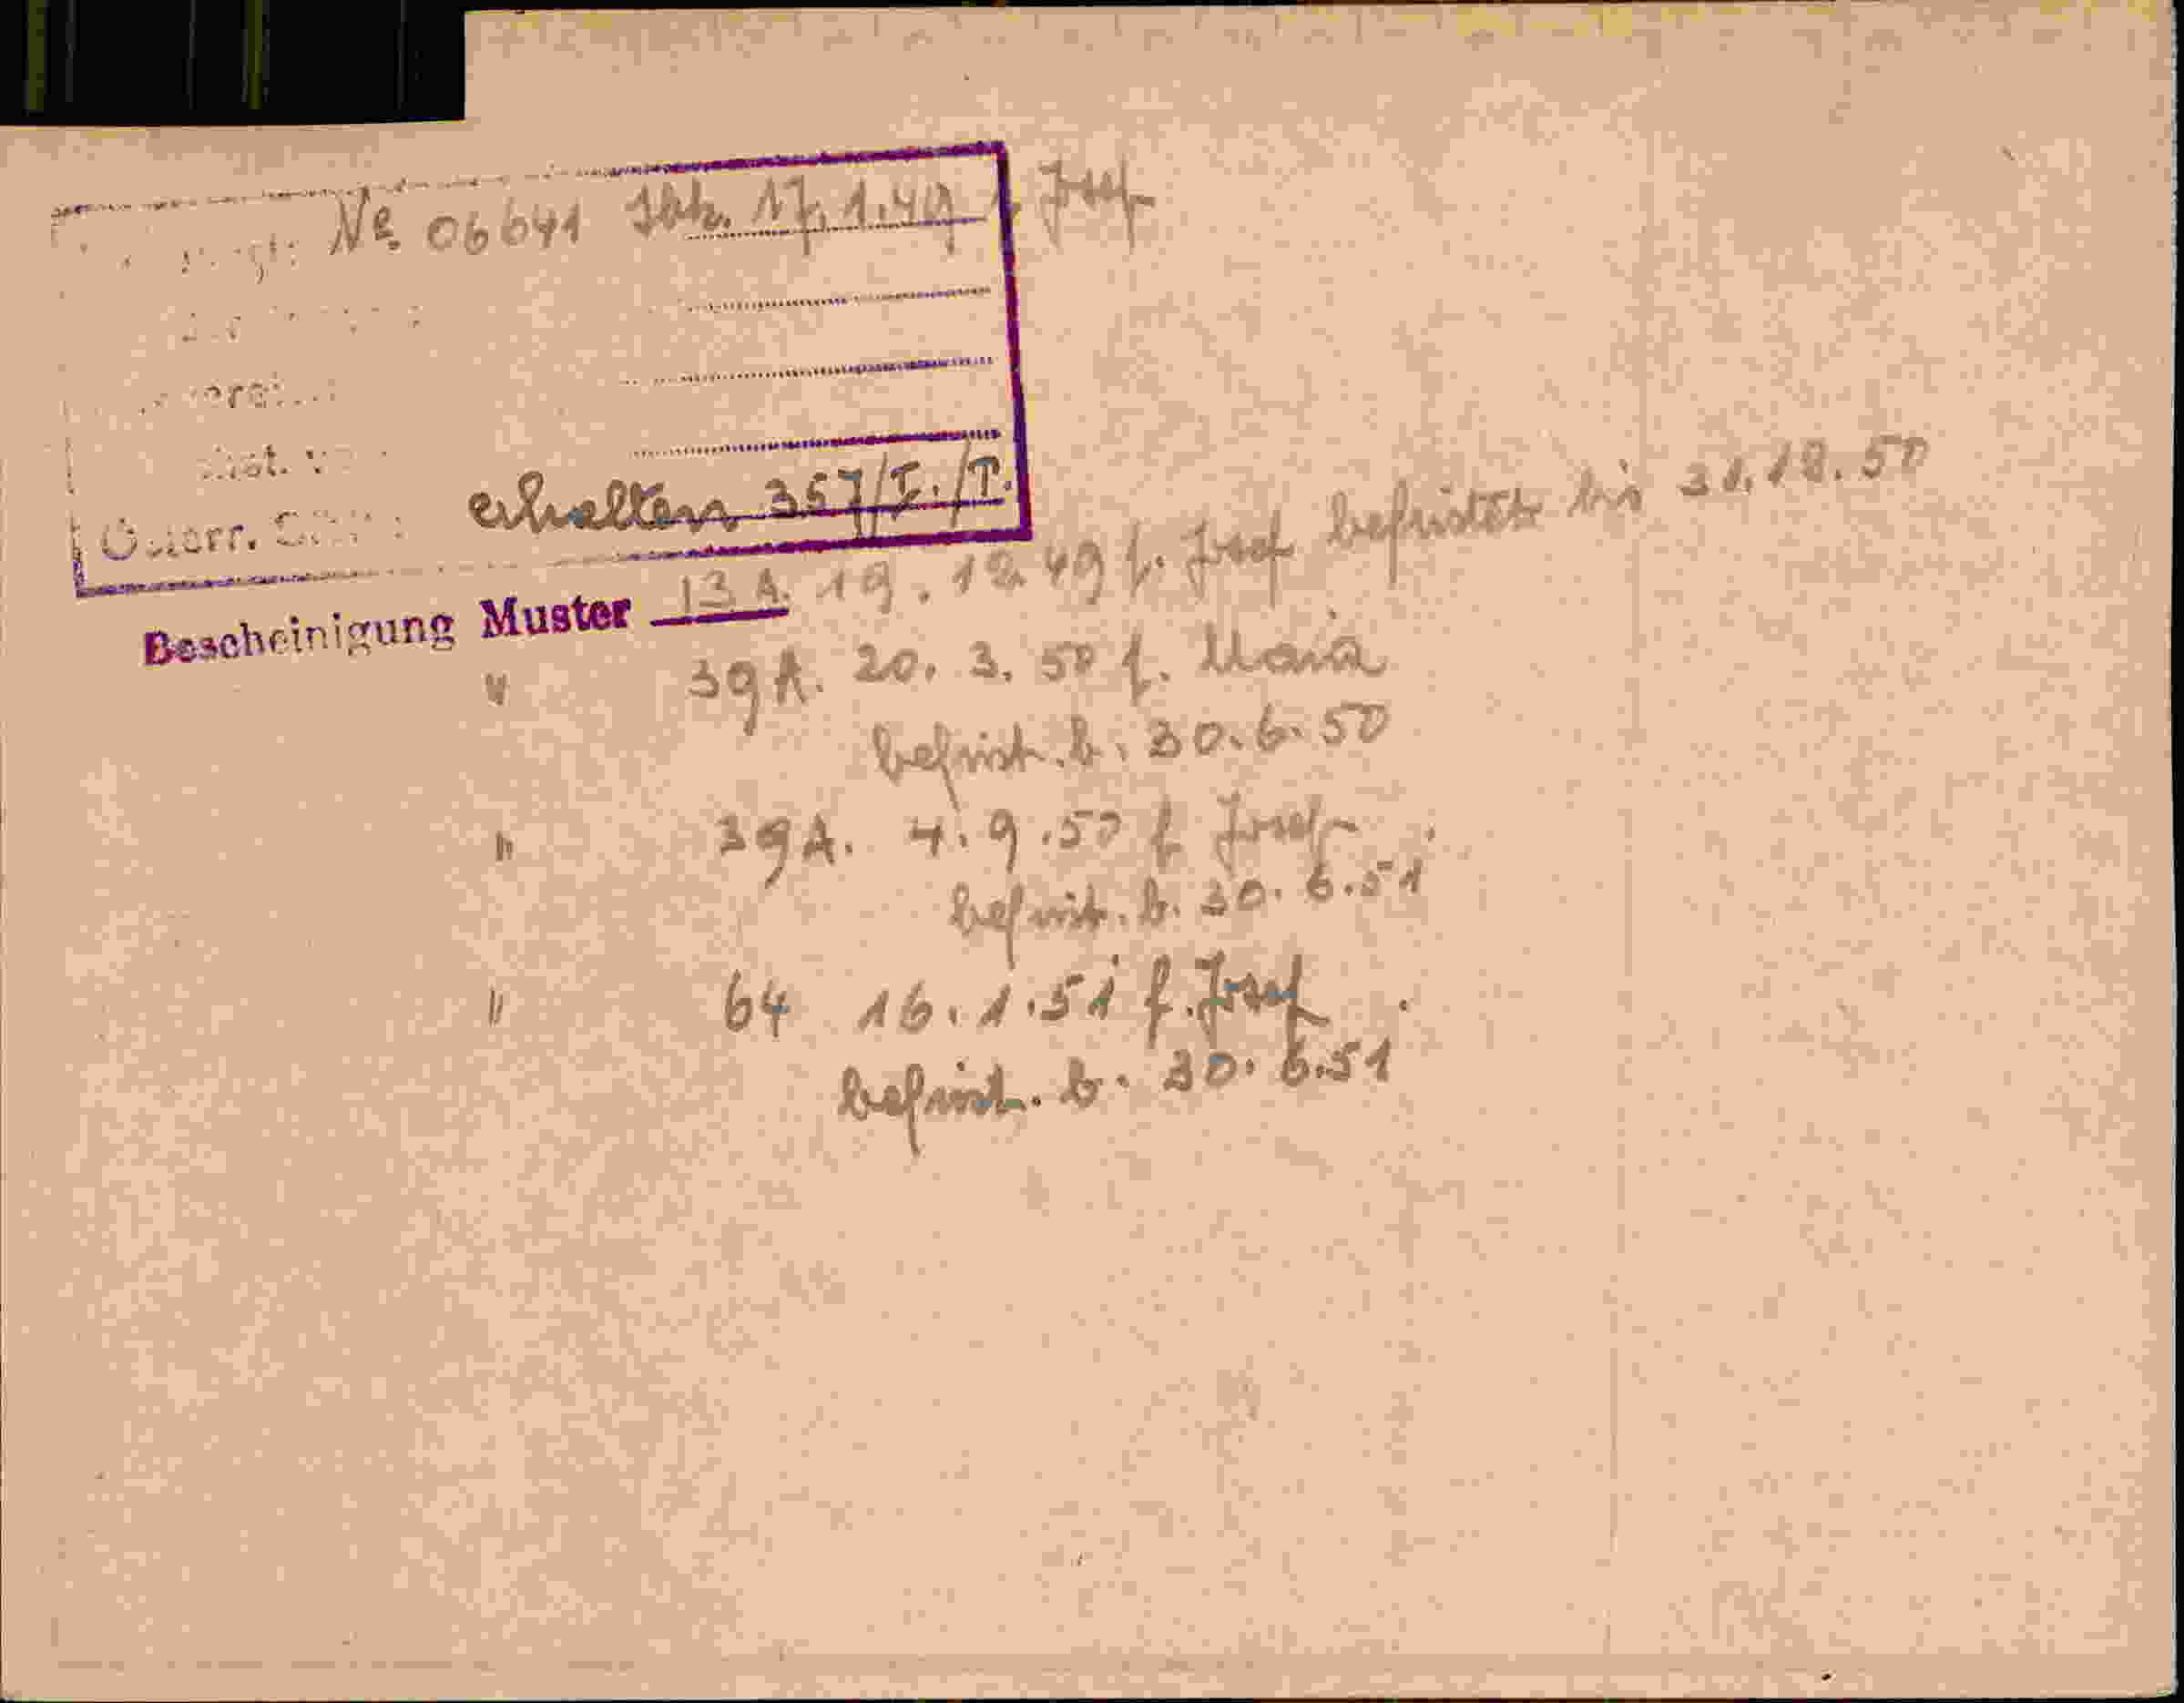 No. 06641 17.1.49 f. Josef
Österr.
erhalten 357/I./T.
Bescheinigung Muster 13 A. 19.12.49 f. Josef befristet bis 31.12.50
" 39 A. 20. 3. 50 f. Maria
befrist. b. 30.6.50
" 39 A. 4.9.50 f Josef
befrist. b. 30.6.51
" 64 16.1.51 f. Josef
befrist. b. 30.6.51